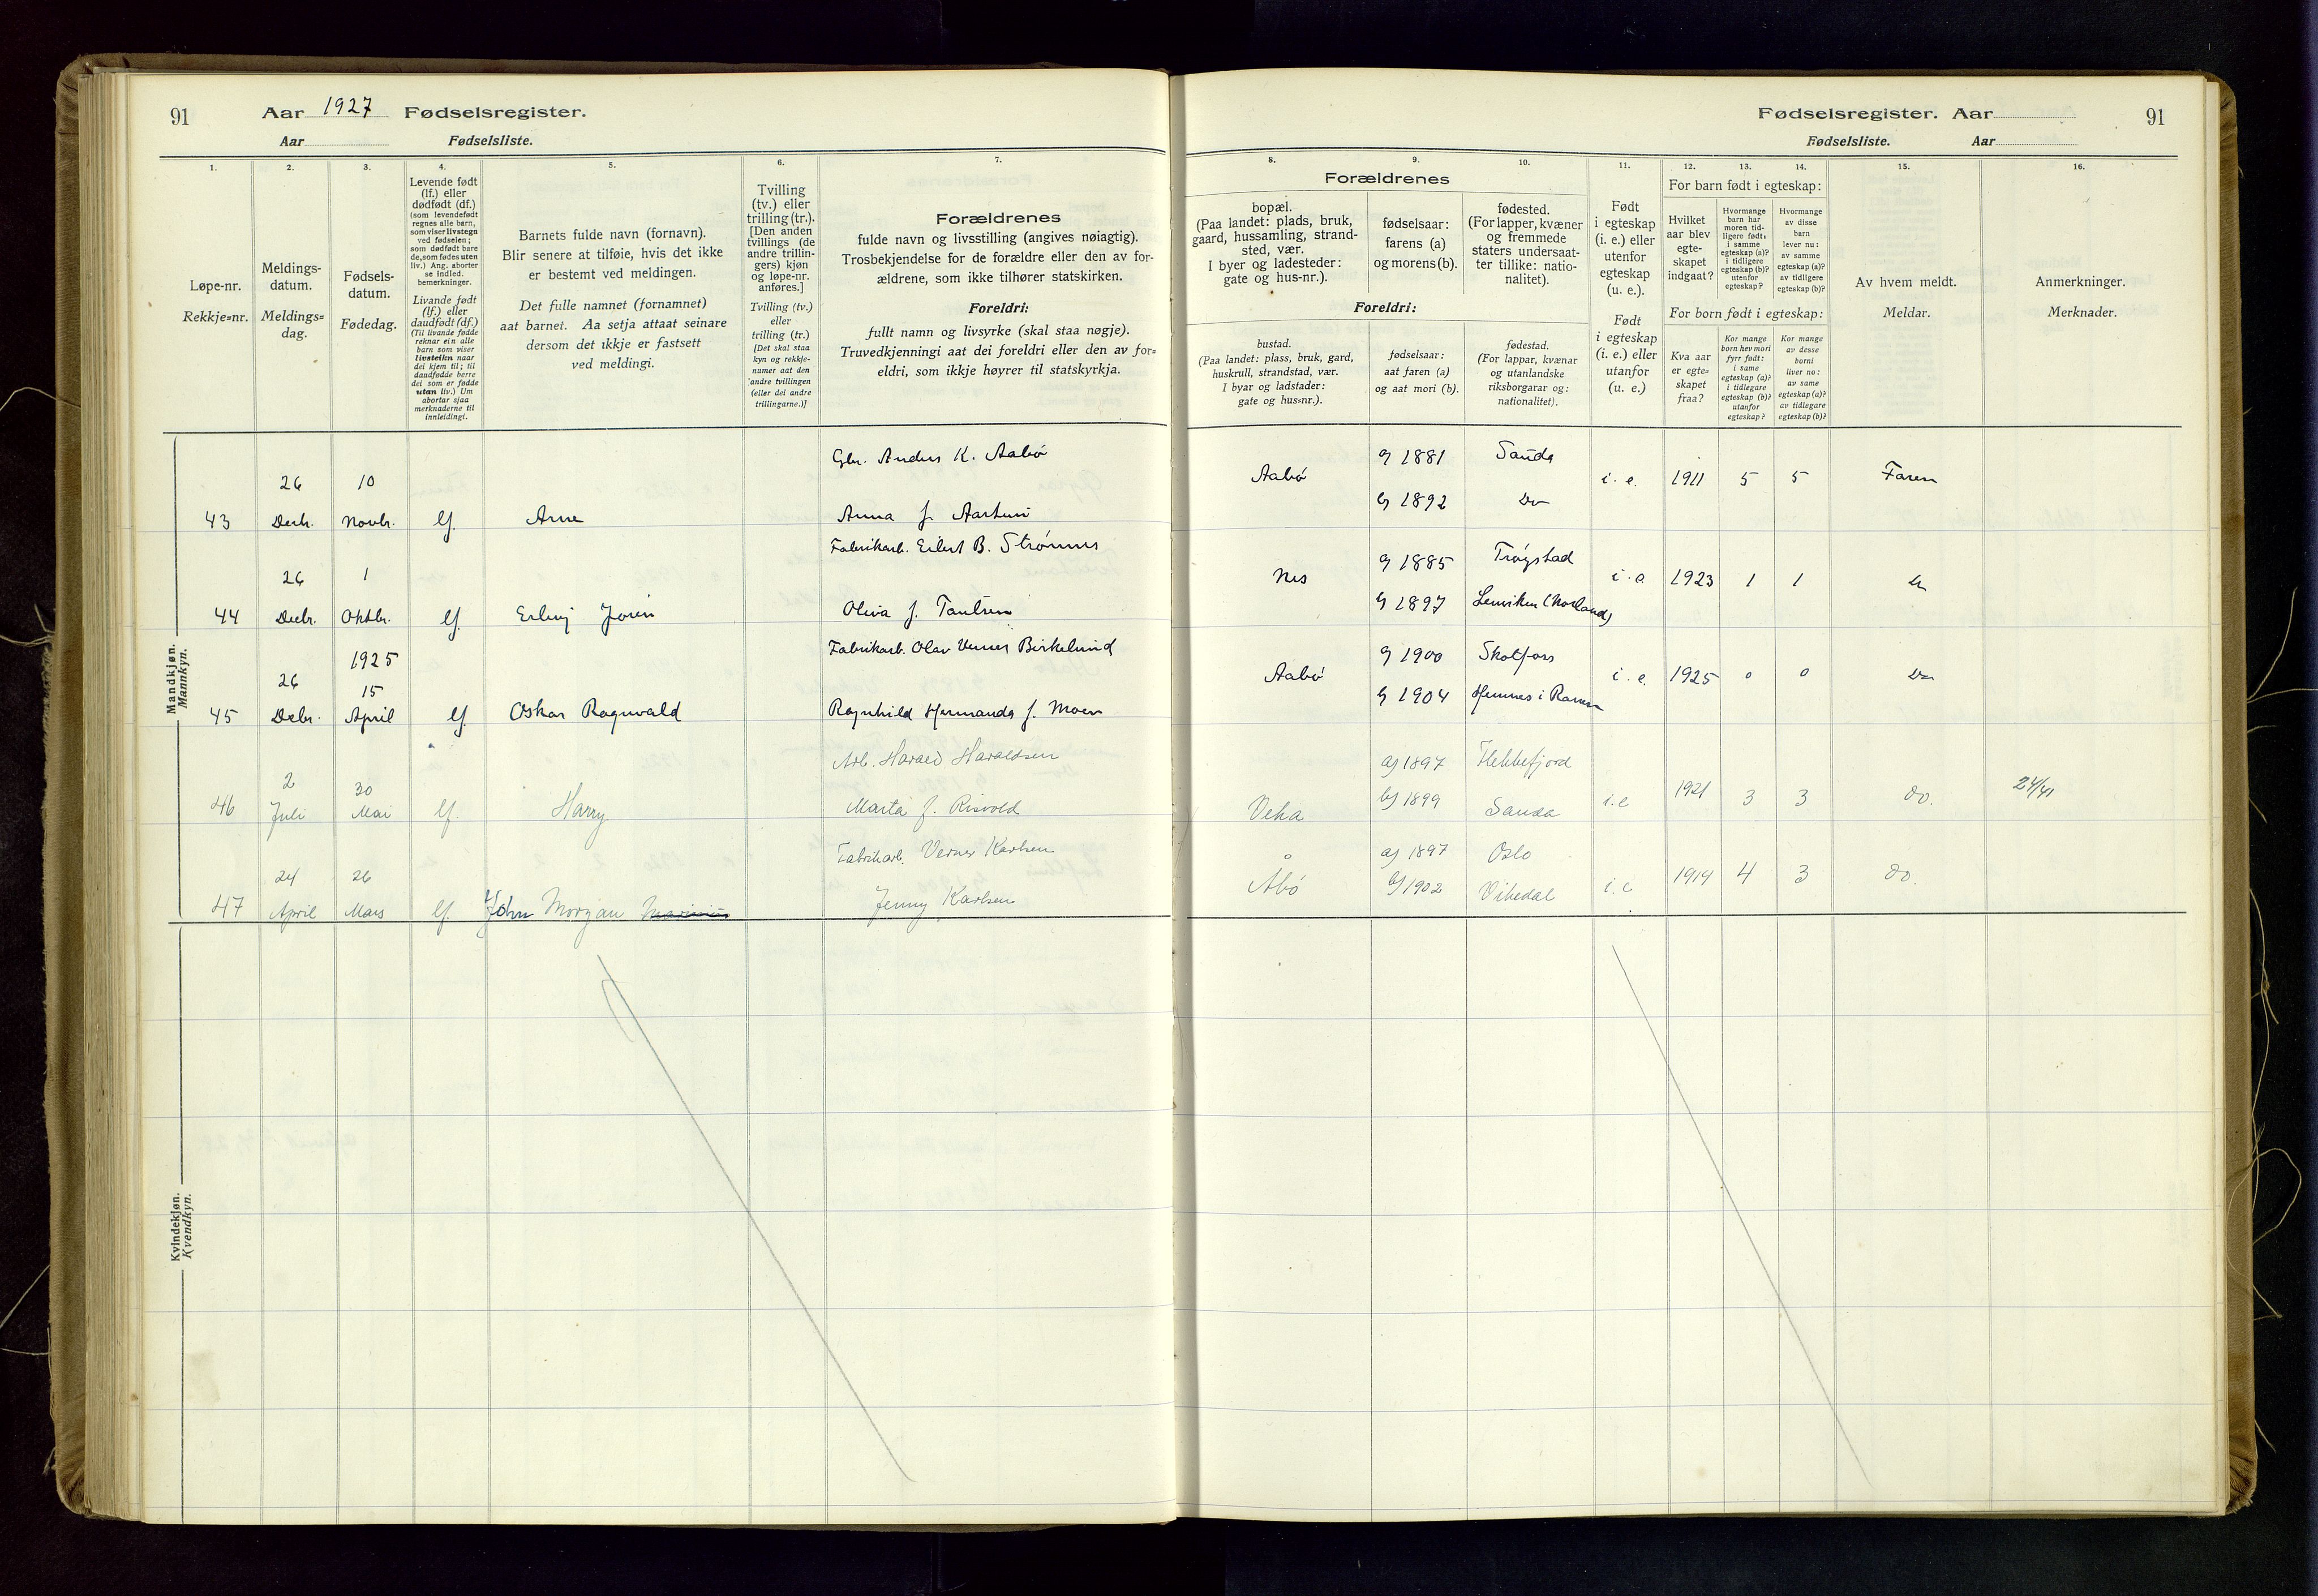 91
Aar 1927 Fødselsregister.
Aar Fødselsliste.
1.
2.
3.
4.
5.
6.
7.
Løpe-nr.
Rekkje=nr.
Meldings-
datum.
Meldings=
dag.
Fødsels-
datum.
Fødedag.
Levende født
(lf.) eller
dødfødt (df.)
(som levendefødt
regnes alle barn,
som viser livstegn
ved fødselen;
som dødfødt bare
de, som fødes uten
liv.) Ang. aborter
se indled.
bemerkninger.
Livande født
(lf.) eller
daudfødt (df.)
(Til livande fødde
reknar ein alle
barn som viser
livsteikn naar
dei kjem til; til
daudfødde berre
dei som er fødde
utan liv.) Um
abortar sjaa
merknaderne til
innleidingi.
Barnets fulde navn (fornavn).
Blir senere at tilføie, hvis det ikke
er bestemt ved meldingen.
Det fulle namnet (fornamnet)
aat barnet. Aa setja attaat seinare
dersom det ikkje er fastsett
ved meldingi.
Tvilling
(tv.) eller
trilling (tr.).
[Den anden
tvillings (de
andre trillin-
gers) kjøn
og løpe-nr.
anføres.]
Tvilling (tv.)
eller
trilling (tr.)
[Det skal staa
kyn og rekkje-
numer aat den
andre tvillingen
(eller dei andre
trillingarne.)]
Forældrenes
fulde navn og livsstilling (angives nøiagtig).
Trosbekjendelse for de forældre eller den av for-
ældrene, som ikke tilhører statskirken.
Foreldri:
fullt namn og livsyrke (skal staa nøgje).
Truvedkjenningi aat dei foreldri eller den av for=
eldri, som ikkje høyrer til statskyrkja.
Mandkjøn.
Mannkyn.
43
26
Decbr.
10
Novbr.
lf.
Arne
Gbr. Anders K. Aabø
Anna f. Aartun
44
26
Decbr.
1
Oktbr.
lf.
Erling Joren
Fabrikarb. Eilert B. Strømnes
Oliva f. Paulsen
45
26
Decbr.
1925
15
April
lf.
Oskar Ragnvald
Fabrikarb. Olav Verner Birkelund
Ragnhild Hermanda f. Moen
46
2
Juli
30
Mai
lf.
Harry
Arb. Harald Haraldsen
Marta f. Risvold
47
24
April
26
Mars
lf.
John Morgan
Fabrikarb. Verner Karlsen
Jenny Karlsen
Kvindekjøn.
Kvendkyn.
Fødselsregister. Aar
91
Fødselsliste. Aar
8.
9.
10.
11.
12.
13.
14.
15.
16.
Forældrenes
bopæl.
(Paa landet: plads, bruk,
gaard, hussamling, strand-
sted, vær.
I byer og ladesteder:
gate og hus-nr.).
fødselsaar:
farens (a)
og morens (b).
fødested.
(For lapper, kvæner
og fremmede
staters undersaat-
ter tillike: natio-
nalitet).
Foreldri:
bustad.
(Paa landet: plass, bruk, gard,
huskrull, strandstad, vær.
I byar og ladstader:
gate og hus=nr.).
fødselsaar:
aat faren (a)
og aat mori (b).
fødestad.
(For lappar, kvænar
og utanlandske
riksborgarar og:
nationalitet).
Født
i egteskap
(i. e.) eller
utenfor
egteskap
(u. e.).
Født
i egteskap
(i. e.) eller
utanfor
egteskap
(u. e.)
For barn født i egteskap:
Hvilket
aar blev
egte-
skapet
indgaat?
Hvormange
barn har
moren tid-
ligere født:
i samme
egteskap (a)?
i tidligere
egteskap (b)?
utenfor
egteskap?
Hvormange
av disse
barn
lever nu:
av samme
egteskap (a)?
av tidligere
egteskap (b)?
For born født i egteskap:
Kva aar
er egte=
skapet
fraa?
Kor mange
born hev mori
fyrr født:
i same
egteskap (a)?
i tidlegare
egteskap (b)?
utanfor
egteskap?
Kor mange
av desse
borni
liver no:
av same
egteskap (a)?
av tidlegare
egteskap (b)?
Av hvem meldt.
Meldar.
Anmerkninger.
Merknader.
Aabø
a) 1881
b) 1892
Sauda
Do
i. e.
1911
5
5
Faren
Nes
a) 1885
b) 1897
Trøgstad
Lenviken (Norland)
i. e.
1923
1
1
Do
Aabø
a) 1900
b) 1904
Skotfoss
Hemnes i Ranen
i. e.
1925
0
0
Do
Veka
a) 1897
b) 1899
Flekkefjord
Sauda
i. e
1921
3
3
do.
24/41
Åbø
a) 1897
b) 1902
Oslo
Vikedal
i. e
1919
4
3
do.